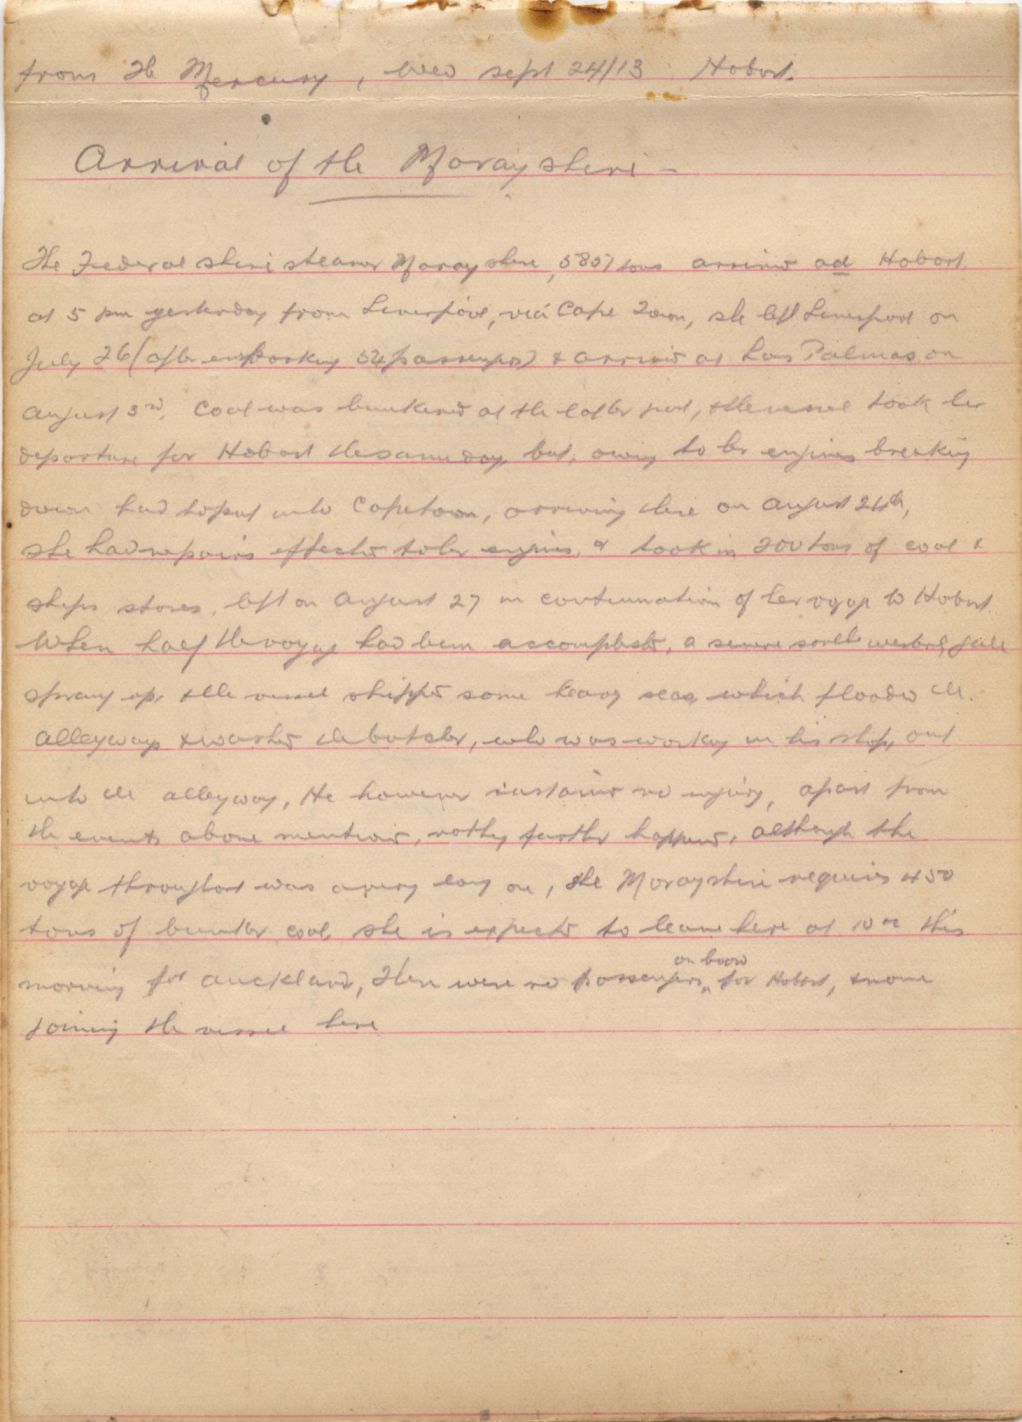 from The Mercury, Wed Sept 24/13 Hobart.
Arrival of the Morayshire —
The Federal shire steamer Morayshire, 5857 tons arrived ad Hobart
at 5 pm yesterday from Liverpool, via Cape Town, she left Liverpool on
July 26 (after embarking 54 passengers) & arrived at Las Palmas on
August 3rd, Coal was bunkered at the latter port, & the vessel took her
departure for Hobart the same day, but, owing to her engines breaking
down had to put into Capetown, arriving there on August 24th,
she had repairs effected to her engines, & took in 200 tons of coal &
ships stores, left on August 27 in continuation of her voyage to Hobart.
When half the voyage had been accomplished, a severe south westerly gale
sprang up, & the vessel shipped some heavy seas, which flooded the
alleyways & washed the butcher, who was working in his shop, out
into the alleyway, He however sustained no injury, apart from
the events above mentioned, nothing further happened, although the
voyage throughout was a very long one, the Morayshire requires 450
tons of bunker coal she is expected to leave here at this
morning for Auckland, There were no passengers on board for Hobart, & none
joining the vessel here